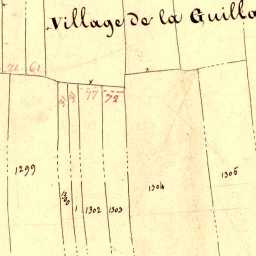 Village de la Guilla
61
77
72
1299
1300
1
1302
1303
1304
1305